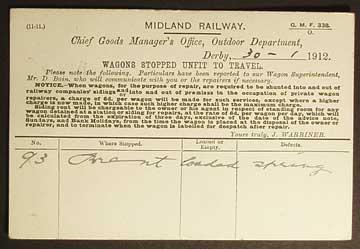 (11-11.) MIDLAND RAILWAY. G. M. F. 338.
O.
Chief Goods Manager's Office, Outdoor Department,
Derby, 30 - 1 1912.
WAGONS STOPPED UNFIT TO TRAVEL.
Please note the following. Particulars have been reported to our Wagon Superintendent,
Mr. D. Bain, who will communicate with you or the repairers if necessary.
NOTICE.—When wagons, for the purpose of repair, are required to be shunted into and out of
railway companies' sidings and/or into and out of premises in the occupation of private wagon
repairers, a charge of 6d. per wagon will be made for such services, except where a higher
charge is now made, in which case such higher charge shall be the maximum charge.
Siding rent will be chargeable to the owner or his agent in respect of standing room for any
wagon detained at a station or siding for repairs, at the rate of 6d. per wagon per day, which will
be calculated from the expiration of three days, exclusive of the date of the advice note,
Sundays, and Bank Holidays, from the time the wagon is placed at the disposal of the owner or
repairer, and to terminate when the wagon is labelled for despatch after repair.
Yours truly, J. WARRINER.
No. Where Stopped. Loaded or Empty. Defects.
93 Brent loaded spring